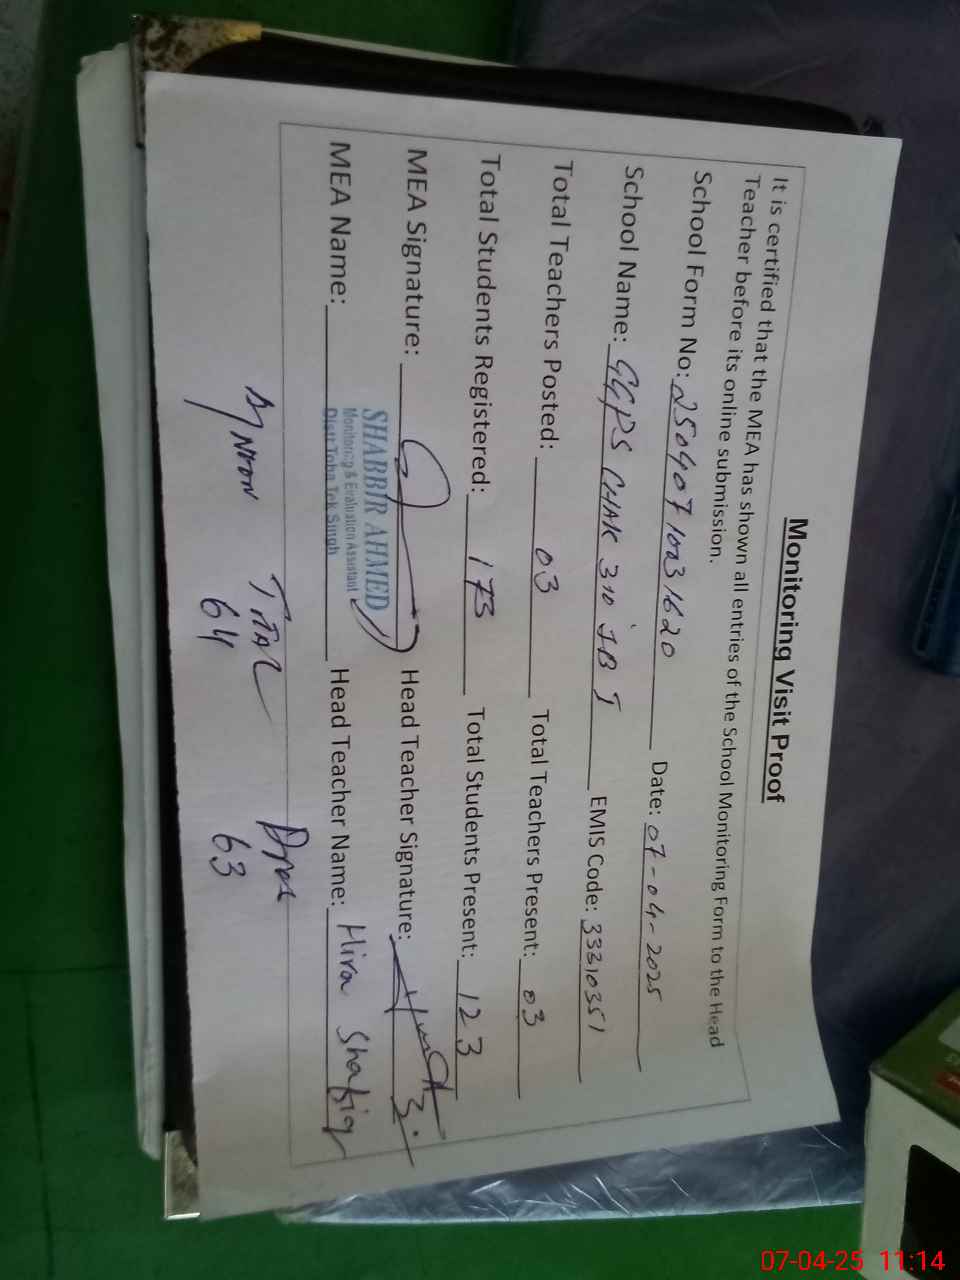 Monitoring Visit Proof
It is certified that the MEA has shown all entries of the School Monitoring Form to the Head
Teacher before its online submission.
School Form No: 25040710031620 Date: 07-04-2025
School Name: GGPS CHAK 310 JB I EMIS Code: 33310351
Total Teachers Posted: 03 Total Teachers Present: 03
Total Students Registered: 173 Total Students Present: 123
MEA Signature: Head Teacher Signature:
SHABBIR AHMED
Monitoring & Evaluation Assistant
Distt Toba Tek Singh
MEA Name: Head Teacher Name: Hira Shafiq
Total
64 63
07-04-25 11:14